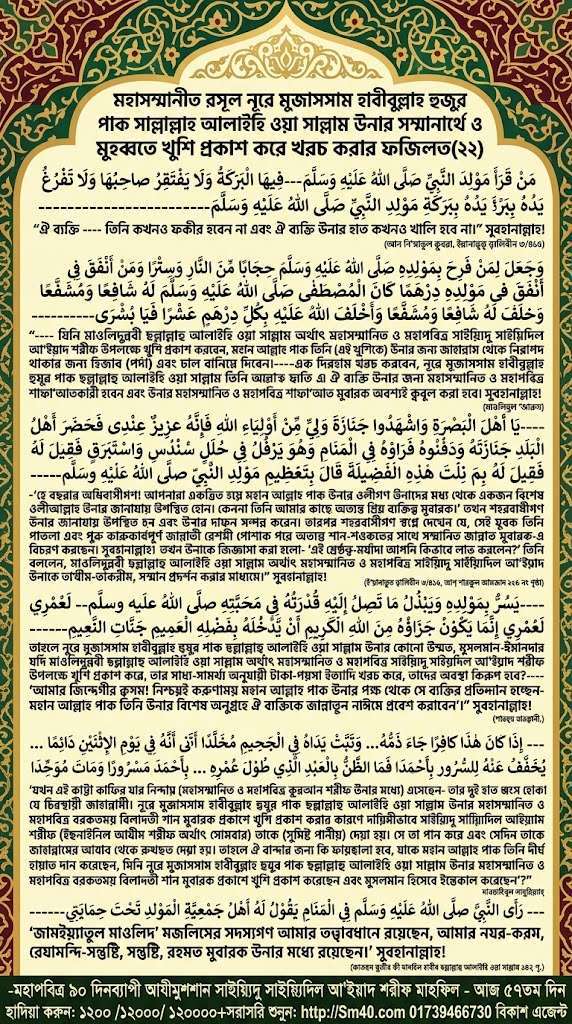 মহাসম্মানীত রসূল নূরে মুজাসসাম হাবীবুল্লাহ হুজুর
পাক সাল্লাল্লাহু আলাইহি ওয়া সাল্লাম উনার সম্মানার্থে ও
মুহব্বতে খুশি প্রকাশ করে খরচ করার ফজিলত(২২)
مَنْ قَرَأَ مَوْلِدَ النَّبِيِّ صَلَّى اللهُ عَلَيْهِ وَسَلَّمَ---فِيهَا الْبَرَكَةُ وَلَا يَفْتَقِرُ صَاحِبُهَا وَلَا تَفْرُغُ
يَدُهُ بِبَرْءِ يَدُهُ بِبَرَكَةِ مَوْلِدِ النَّبِيِّ صَلَّى اللهُ عَلَيْهِ وَسَلَّمَ------------------------
“ঐ ব্যক্তি ---- তিনি কখনও ফকীর হবেন না এবং ঐ ব্যক্তি উনার হাত কখনও খালি হবে না।” সুবহানাল্লাহ!
(আন নি'মাতুল কুবরা, ইয়ানাতুত্ব ত্বালিবীন ৩/৪৬৫)
وَجَعَلَ لِمَنْ فَرِحَ بِمَوْلِدِهِ صَلَّى اللهُ عَلَيْهِ وَسَلَّمَ حِجَابًا مِّنَ النَّارِ وَسِتْرًا وَمَنْ أَنْفَقَ فِي
أَنْفَقَ فِي مَوْلِدِهِ دِرْهَمًا كَانَ الْمُصْطَفٰى صَلَّى اللهُ عَلَيْهِ وَسَلَّمَ لَهُ شَافِعًا وَمُشَفَّعًا
وَخَلَّفَ لَهُ شَافِعًا وَمُشَفَّعًا وَأَخْلَفَ اللهُ عَلَيْهِ بِكُلِّ دِرْهَمٍ عَشْرًا فَيَا بُشْرٰى----------
“---- যিনি মাওলিদুন্নবী ছল্লাল্লাহু আলাইহি ওয়া সাল্লাম অর্থাৎ মহাসম্মানিত ও মহাপবিত্র সাইয়্যিদু সাইয়্যিদিল
আ'ইয়াদ শরীফ উপলক্ষে খুশি প্রকাশ করবেন, মহান আল্লাহ পাক তিনি (এই খুশিকে) উনার জন্য জাহান্নাম থেকে নিরাপদ
থাকার জন্য হিজাব (পর্দা) এবং ঢাল বানিয়ে দিবেন।----এক দিরহাম খরচ করবেন, নূরে মুজাসসাম হাবীবুল্লাহ
হুযূর পাক ছল্লাল্লাহু আলাইহি ওয়া সাল্লাম তিনি ঐ ব্যক্তি উনার জন্য মহাসম্মানিত ও মহাপবিত্র
শাফা'আতকারী হবেন এবং উনার মহাসম্মানিত ও মহাপবিত্র শাফা'আত মুবারক অবশ্যই ক্ববুল করা হবে। সুবহানাল্লাহ!
----يَا أَهْلَ الْبَصْرَةِ وَاشْهَدُوا جَنَازَةَ وَلِيٍّ مِّنْ أَوْلِيَاءِ اللهِ فَإِنَّهُ عَزِيزٌ عِنْدِي فَحَضَرَ أَهْلُ
الْبَلَدِ جَنَازَتَهُ وَدَفَنُوهُ فَرَاوْهُ فِي الْمَنَامِ وَهُوَ يَرْفُلُ فِي حُلَلِ سُنْدُسٍ وَاسْتَبْرَقٍ فَقِيلَ لَهُ
فَقِيلَ لَهُ بِمَ نِلْتَ هٰذِهِ الْفَضِيلَةَ قَالَ بِتَعْظِيمِ مَوْلِدِ النَّبِيِّ صَلَّى اللهُ عَلَيْهِ وَسَلَّمَ-----
-‘হে বছরার অধিবাসীগণ! আপনারা একত্রিত হয়ে মহান আল্লাহ পাক উনার ওলীগণ উনাদের মধ্য থেকে একজন বিশেষ
ওলীআল্লাহ উনার জানাযায় উপস্থিত হোন। কেননা তিনি আমার কাছে অত্যন্ত প্রিয় ব্যক্তিত্ব মুবারক।’ তখন শহরবাসীগণ
উনার জানাযায় উপস্থিত হন এবং উনার দাফন সম্পন্ন করেন। তারপর শহরবাসীগণ স্বপ্নে দেখেন যে, সেই যুবক তিনি
পাতলা এবং পুরু কারুকার্যপূর্ণ জান্নাতী রেশমী পোশাক পরে অত্যন্ত শান-শওকতের সাথে সম্মানিত জান্নাত মুবারক-এ
বিচরণ করছেন। সুবহানাল্লাহ! তখন উনাকে জিজ্ঞাসা করা হলো- ‘এই শ্রেষ্ঠত্ব-মর্যাদা আপনি কিভাবে লাভ করলেন?’ তিনি
বললেন, মাওলিদুন্নবী ছল্লাল্লাহু আলাইহি ওয়া সাল্লাম অর্থাৎ মহাসম্মানিত ও মহাপবিত্র সাইয়্যিদু সাইয়্যিদিল আ'ইয়াদ শরীফ
উনাকে তা'যীম-তাকরীম, সম্মান প্রদর্শন করার মাধ্যমে।” সুবহানাল্লাহ!
----يَسُرُّ بِمَوْلِدِهِ وَيَبْذُلُ مَا تَصِلُ إِلَيْهِ قُدْرَتُهُ فِي مَحَبَّتِهِ صَلَّى اللهُ عليه وسلم-- لَعَمْرِي
لَعَمْرِي إِنَّمَا يَكُونُ جَزَاؤُهُ مِنَ اللهِ الْكَرِيمِ أَنْ يَدْخُلَهُ بِفَضْلِهِ الْعَمِيمِ جَنَّاتِ النَّعِيمِ------
তাহলে নূরে মুজাসসাম হাবীবুল্লাহ হুযূর পাক ছল্লাল্লাহু আলাইহি ওয়া সাল্লাম উনার কোনো উম্মত, মুসলমান-ঈমানদার
যদি মাওলিদুন্নবী ছল্লাল্লাহু আলাইহি ওয়া সাল্লাম অর্থাৎ মহাসম্মানিত ও মহাপবিত্র সাইয়্যিদু সাইয়্যিদিল আ'ইয়াদ শরীফ
উপলক্ষে খুশি প্রকাশ করে, তার সাধ্য-সামর্থ্য অনুযায়ী টাকা-পয়সা ইত্যাদি খরচ করে, তাদের অবস্থা কিরূপ হবে?----
‘আমার জিন্দেগীর ক্বসম! নিশ্চয়ই করুণাময় মহান আল্লাহ পাক উনার পক্ষ থেকে সে ব্যক্তির প্রতিদান হচ্ছেন-
মহান আল্লাহ পাক তিনি উনার বিশেষ অনুগ্রহে ঐ ব্যক্তিকে জান্নাতুন নাঈমে প্রবেশ করাবেন’।” সুবহানাল্লাহ!
--- إِذَا كَانَ هٰذَا كَافِرًا جَاءَ ذَمُّهُ... وَتَبَّتْ يَدَاهُ فِي الْجَحِيمِ مُخَلَّدًا أَتٰى أَنَّهُ فِي يَوْمِ الْإِثْنَيْنِ دَائِمًا ...
يُخَفَّفُ عَنْهُ لِلسُّرُورِ بِأَحْمَدَا فَمَا الظَّنُّ بِالْعَبْدِ الَّذِي طُولَ عُمْرِهِ ... بِأَحْمَدَ مَسْرُورًا وَمَاتَ مُوَحِّدَا
‘যখন এই কাট্টা কাফির যার নিন্দায় (মহাসম্মানিত ও মহাপবিত্র কুরআন শরীফ উনার মধ্যে) এসেছেন- তার দুই হাত ধ্বংস হোক।
যে চিরস্থায়ী জাহান্নামী। নূরে মুজাসসাম হাবীবুল্লাহ হুযূর পাক ছল্লাল্লাহু আলাইহি ওয়া সাল্লাম উনার মহাসম্মানিত ও
মহাপবিত্র বরকতময় বিলাদতী শান মুবারক প্রকাশে খুশি প্রকাশ করার কারণে দায়িমীভাবে সাইয়্যিদু সাইয়্যিদিল আইয়াম
শরীফ (ইছনাইনিল আযীম শরীফ অর্থাৎ সোমবার) তাকে (সুমিষ্ট পানীয়) দেয়া হয়। সে তা পান করে এবং সেদিন তাকে
জাহান্নামের আযাব থেকে রুখছত দেয়া হয়। তাহলে ঐ বান্দার জন্য কি ফায়ছালা হবে, যাকে মহান আল্লাহ পাক তিনি দীর্ঘ
হায়াত দান করেছেন, যিনি নূরে মুজাসসাম হাবীবুল্লাহ হুযূর পাক ছল্লাল্লাহু আলাইহি ওয়া সাল্লাম উনার মহাসম্মানিত ও
মহাপবিত্র বরকতময় বিলাদতী শান মুবারক প্রকাশে খুশি প্রকাশ করেছেন এবং মুসলমান হিসেবে ইন্তেকাল করেছেন’?”
--- رَأَى النَّبِيَّ صَلَّى اللهُ عَلَيْهِ وَسَلَّم فِي الْمَنَامِ يَقُولُ لَهُ أَهْلُ جَمْعِيَّةِ الْمَوْلِدِ تَحْتَ حِمَايَتِي------
‘জামইয়্যাতুল মাওলিদ’ মজলিসের সদস্যগণ আমার তত্ত্বাবধানে রয়েছেন, আমার নযর-করম,
রেযামন্দি-সন্তুষ্টি, সন্তুষ্টি, রহমত মুবারক উনার মধ্যে রয়েছেন।’ সুবহানাল্লাহ!
-মহাপবিত্র ৯০ দিনব্যাপী আযীমুশশান সাইয়্যিদু সাইয়্যিদিল আ'ইয়াদ শরীফ মাহফিল - আজ ৫৭তম দিন
হাদিয়া করুন: ১২০০ /১২০০০/ ১২০০০০+সরাসরি শুনুন: http://Sm40.com 01739466730 বিকাশ এজেন্ট